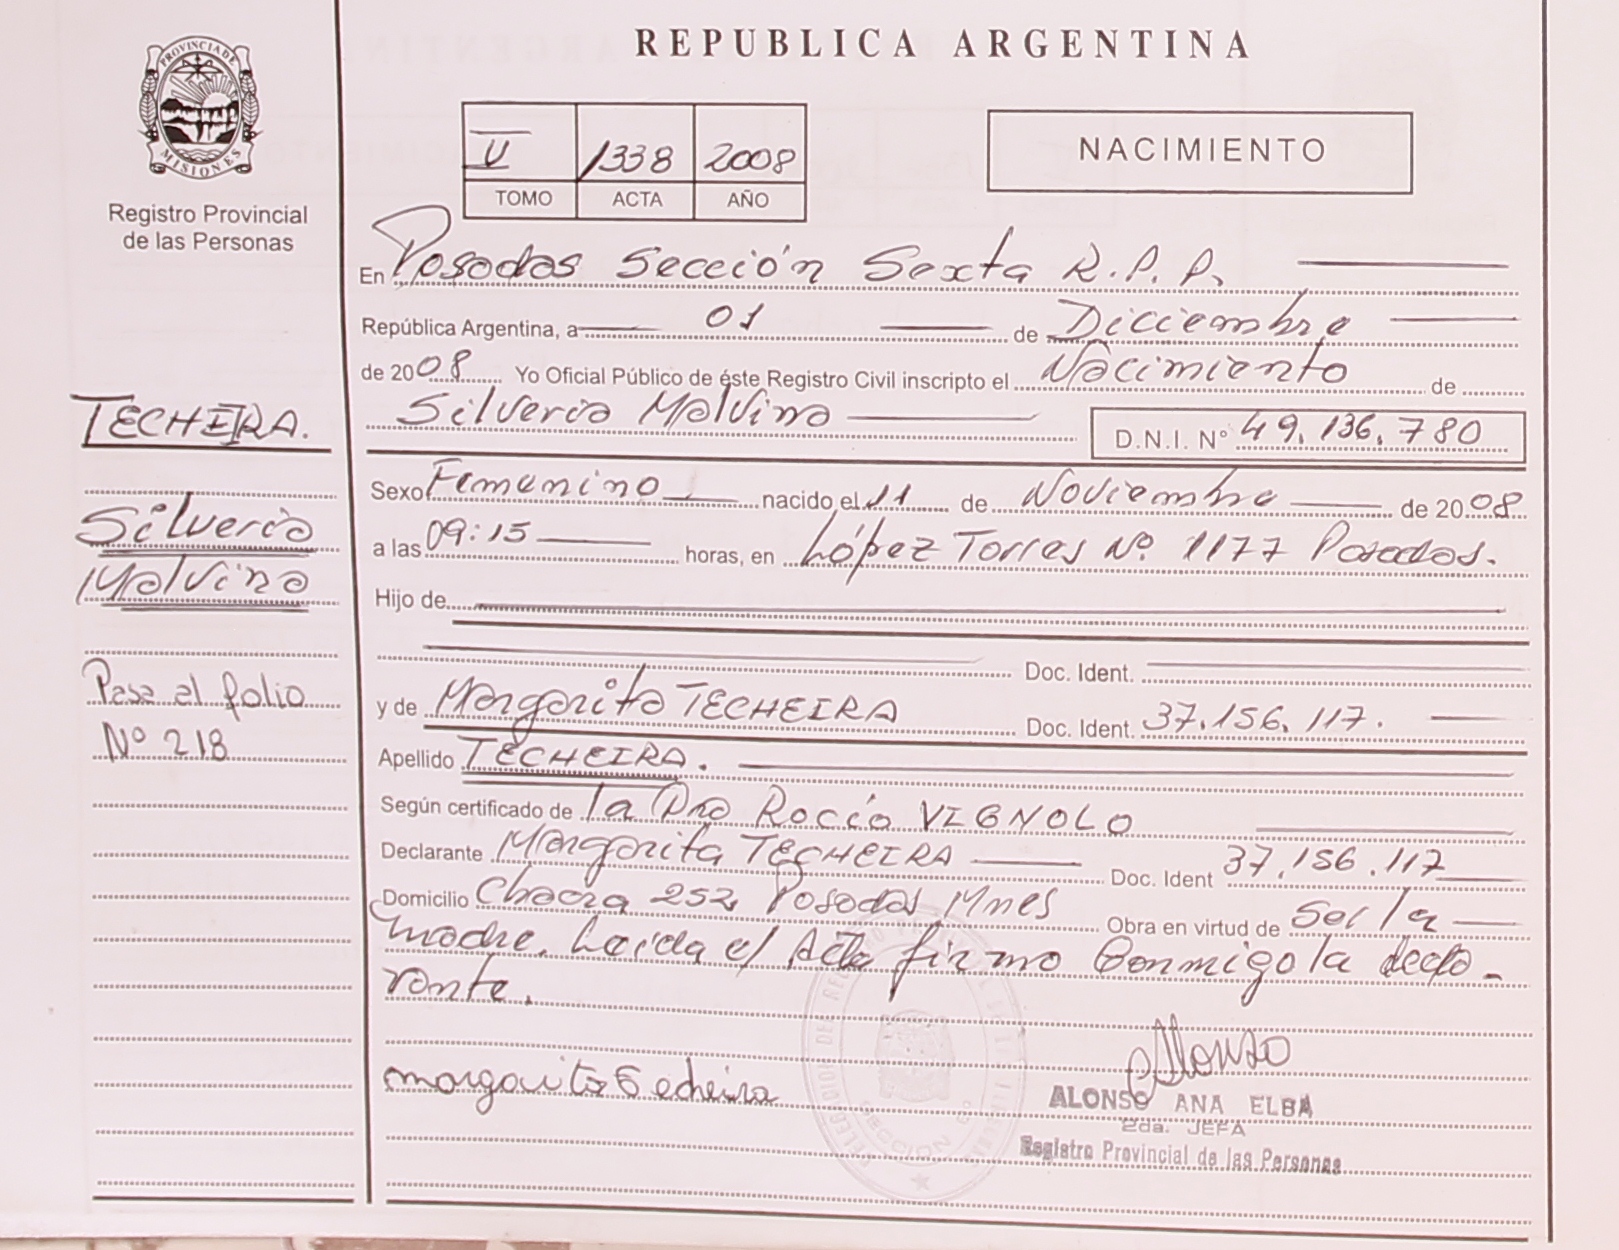 REPUBLICA ARGENTINA
PROVINCIA DE
MISIONES
Registro Provincial
de las Personas
V 1338 2008
TOMO ACTA AÑO
NACIMIENTO
En Posadas Sección Sexta R.P.P.
República Argentina, a 01 de Diciembre
de 2008 Yo Oficial Público de éste Registro Civil inscripto el Nacimiento de
Silveria Malvina D.N.I. Nº 49.136.780
TECHEIRA.
Silveria
Malvina
Pasa al folio
Nº 218
Sexo Femenino nacido el 11 de Noviembre de 2008
a las 09:15 horas, en López Torres Nº 1177 Posadas.
Hijo de
Doc. Ident.
y de Margarita TECHEIRA Doc. Ident. 37.156.117.
Apellido TECHEIRA.
Según certificado de la Dra Rocío VIGNOLO
Declarante Margarita TECHEIRA Doc. Ident 37.156.117
Domicilio Chacra 252 Posadas Mnes Obra en virtud de Ser la
madre. Leida el Acta firma Conmigo la decla-
rante.
margarita Techeira
Alonso
ALONSO ANA ELBA
2da. JEFA
Registro Provincial de las Personas